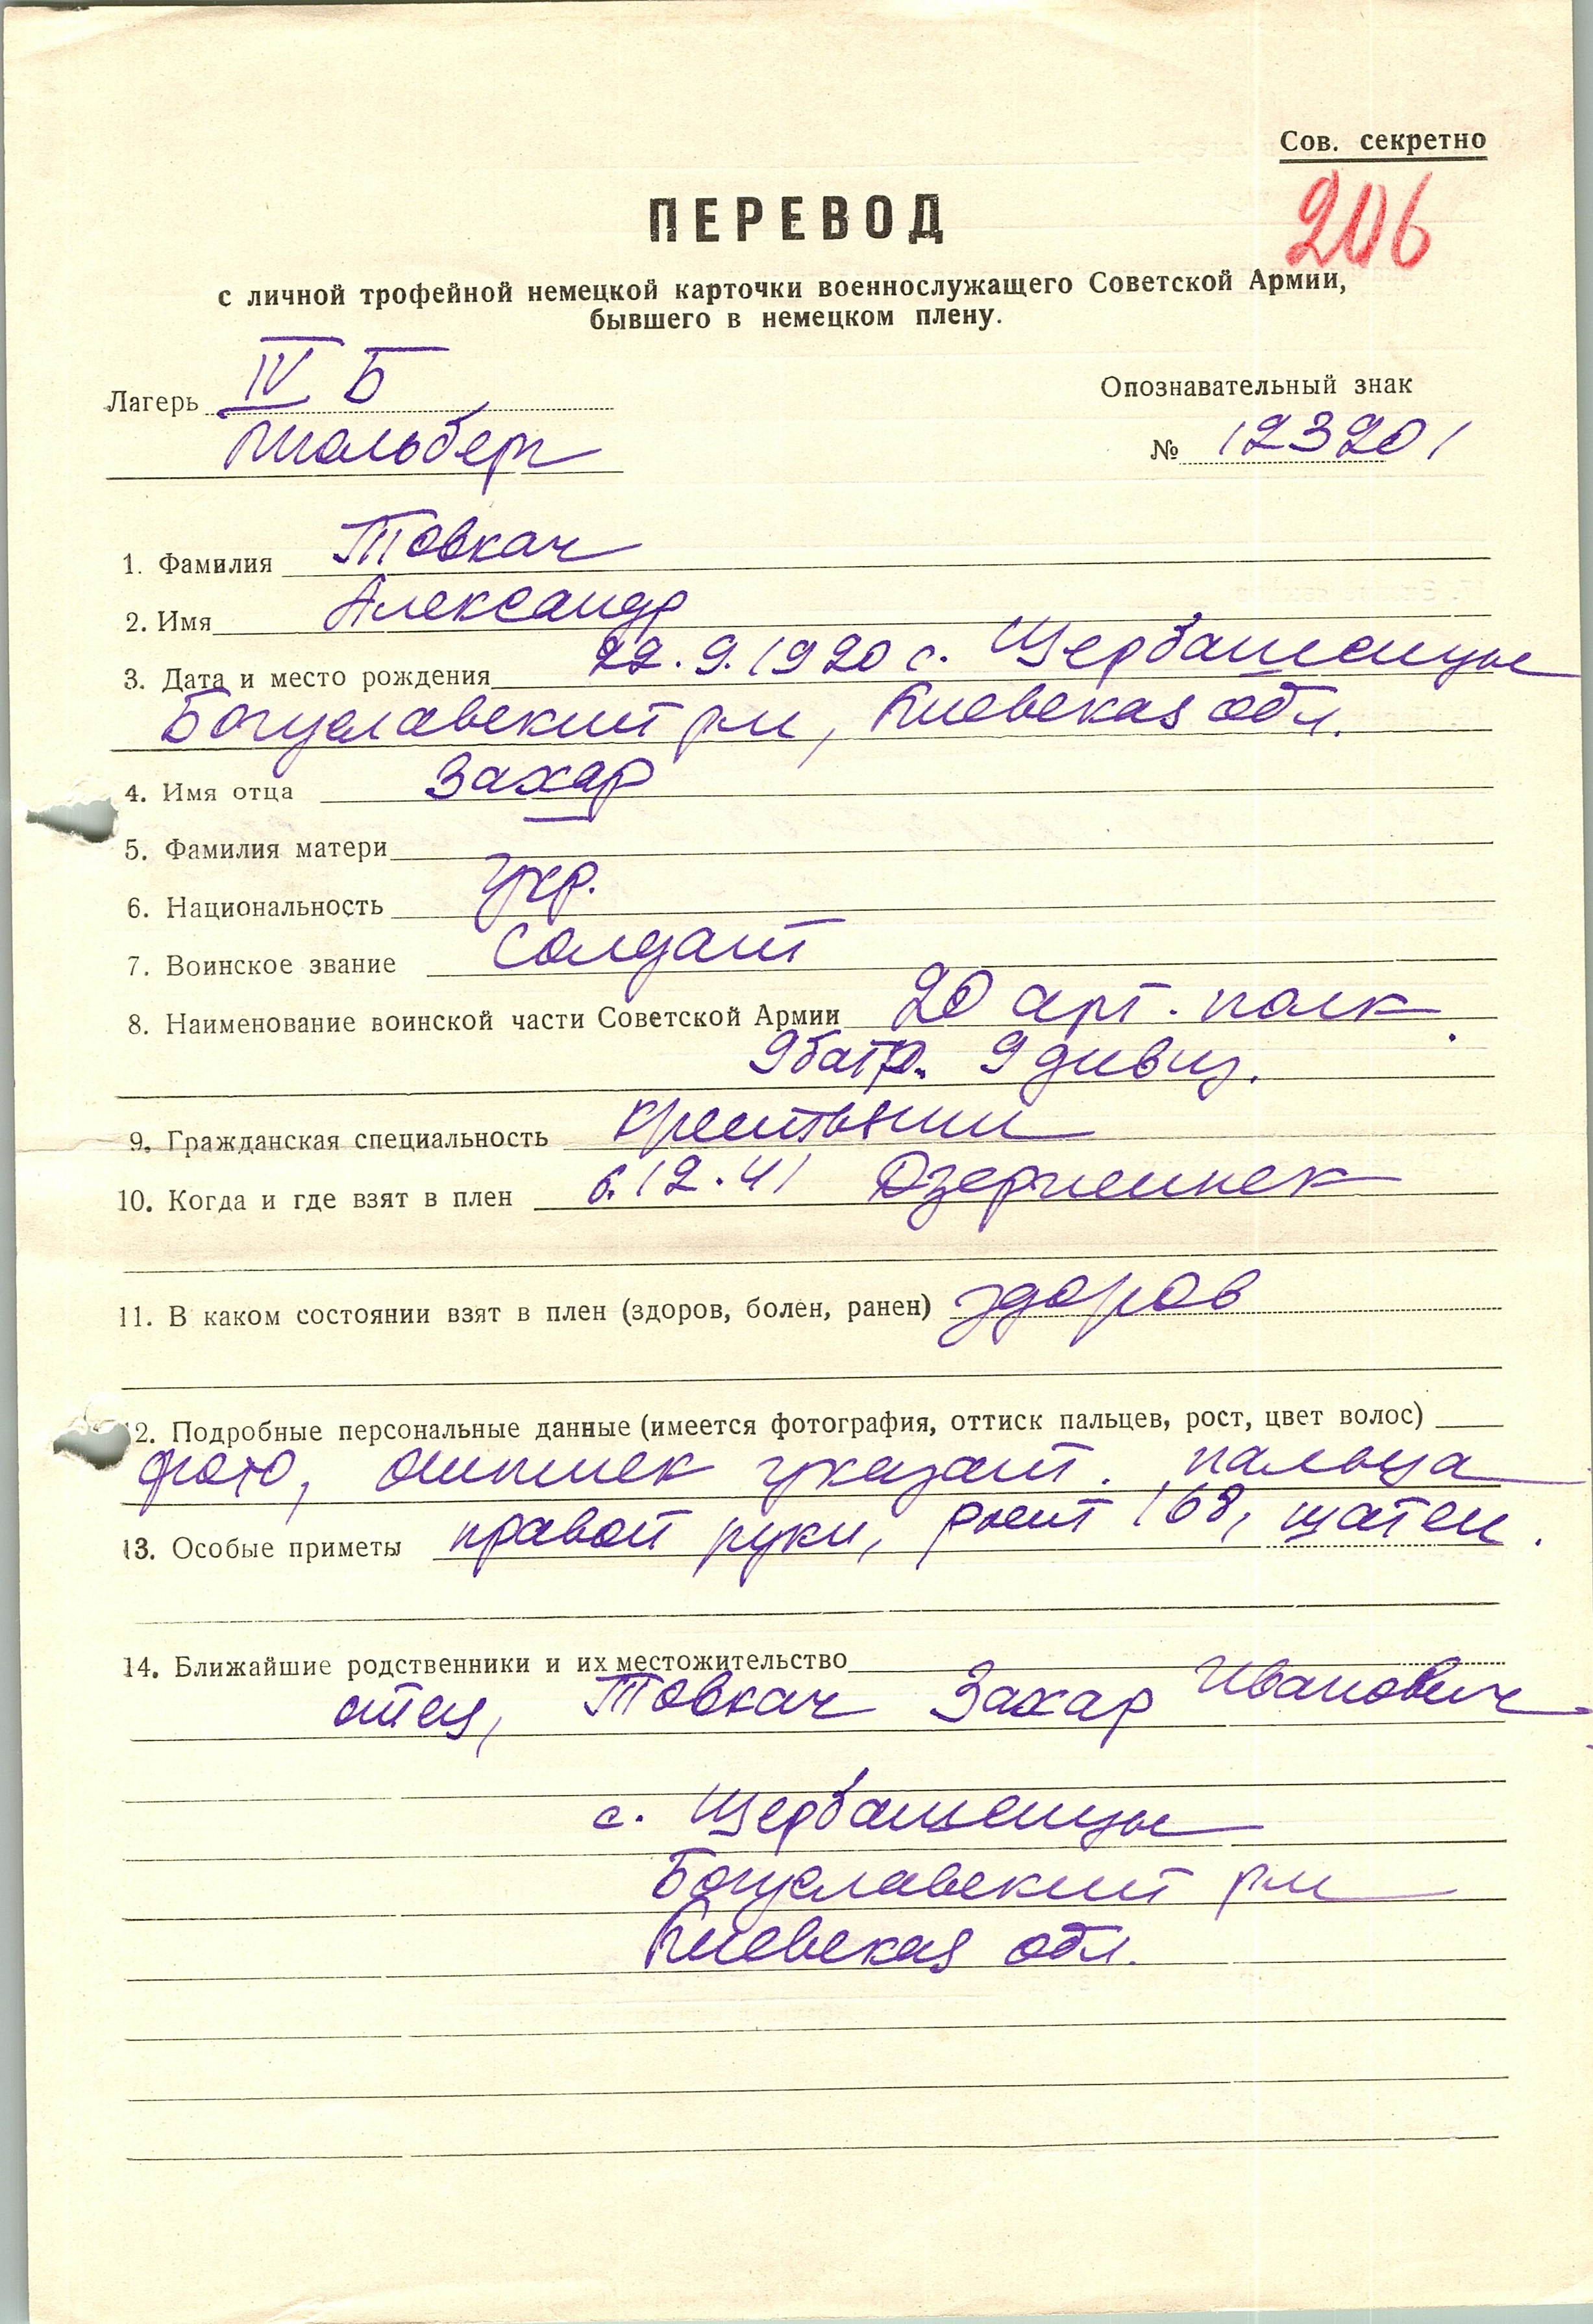 Сов. секретно
206
ПЕРЕВОД
с личной трофейной немецкой карточки военнослужащего Советской Армии,
бывшего в немецком плену.
Лагерь IV Б
Мюльберг
Опознавательный знак
№ 123201
1. Фамилия Товкач
2. Имя Александр
3. Дата и место рождения 22.9.1920 с. Щербашенцы
Богуславский р-н, Киевская обл.
4. Имя отца Захар
5. Фамилия матери —
6. Национальность укр.
7. Воинское звание Солдат
8. Наименование воинской части Советской Армии 20 арт. полк.
9 батр. 9 дивиз.
9. Гражданская специальность крестьянин
10. Когда и где взят в плен 6.12.41
11. В каком состоянии взят в плен (здоров, болен, ранен) здоров
12. Подробные персональные данные (имеется фотография, оттиск пальцев, рост, цвет волос)
фото, оттиск указат. пальца
13. Особые приметы правой руки, рост 168, шатен.
14. Ближайшие родственники и их местожительство
отец, Товкач Захар Иванович
с. Щербашенцы
Богуславский р-н
Киевская обл.